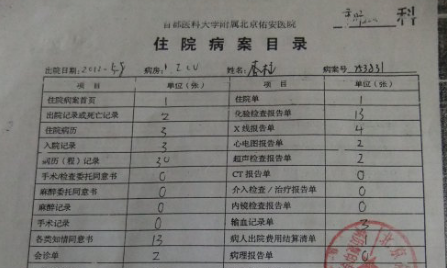 科
首都医科大学附属北京佑安医院
住院病案目录
出院日期: 病房: 姓名: 病案号
项目 单位(张) 项目 单位(张)
住院病案首页 1 住院单 1
出院记录或死亡记录 2 化验检查报告单 13
住院病历 3 X线报告单 4
入院记录 3 心电图报告单 2
病历(程)记录 30 超声检查报告单 2
手术/检查委托同意书 0 CT报告单 0
麻醉委托同意书 0 介入检查/治疗报告单 0
麻醉记录 0 内镜检查报告单 0
手术记录 0 输血记录单 3
各类知情同意书 13 病人出院费用结算清单
会诊单 2 病理报告单